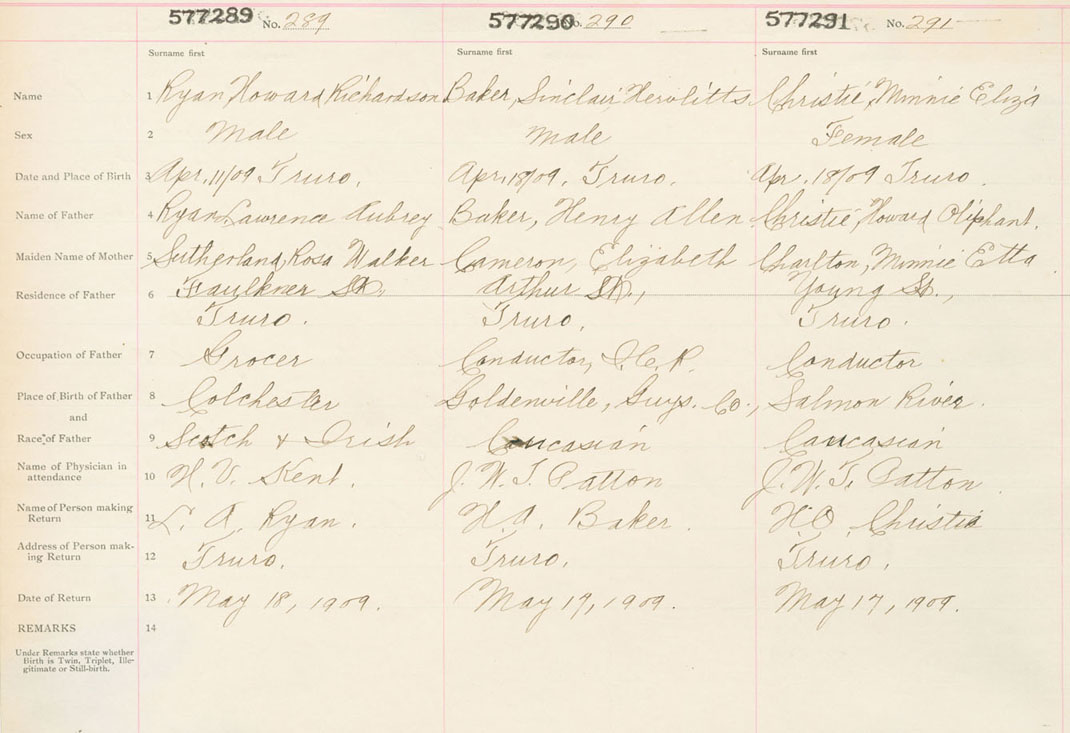 577289 No. 289 577290 No. 290 577291 No. 291
Surname first Surname first Surname first
Name 1 Ryan Howard Richardson Baker, Sinclair Christie, Minnie Eliza
Sex 2 Male Male Female
Date and Place of Birth 3 Apr. 11/09 Truro. Apr. 18/09. Truro. Apr. 18/09 Truro.
Name of Father 4 Ryan Lawrence Aubrey Baker, Henry Allen Christie, Howard Oliphant.
Maiden Name of Mother 5 Sutherland, Rosa Walker Cameron, Elizabeth Charlton, Minnie Etta
Residence of Father 6 Faulkner St., Arthur St., Young St.,
Truro. Truro. Truro.
Occupation of Father 7 Grocer Conductor, I.C.R. Conductor
Place of Birth of Father 8 Colchester Goldenville, Guys. Co., Salmon River.
and
Race of Father 9 Scotch & Irish Caucasian Caucasian
Name of Physician in
attendance 10 H. V. Kent. J. W. T. Patton J. W. T. Patton
Name of Person making
Return 11 L. A. Ryan. H. A. Baker. H.O. Christie
Address of Person mak-
ing Return 12 Truro. Truro. Truro.
Date of Return 13 May 18, 1909. May 19, 1909. May 17, 1909.
REMARKS 14
Under Remarks state whether
Birth is Twin, Triplet, Ille-
gitimate or Still-birth.